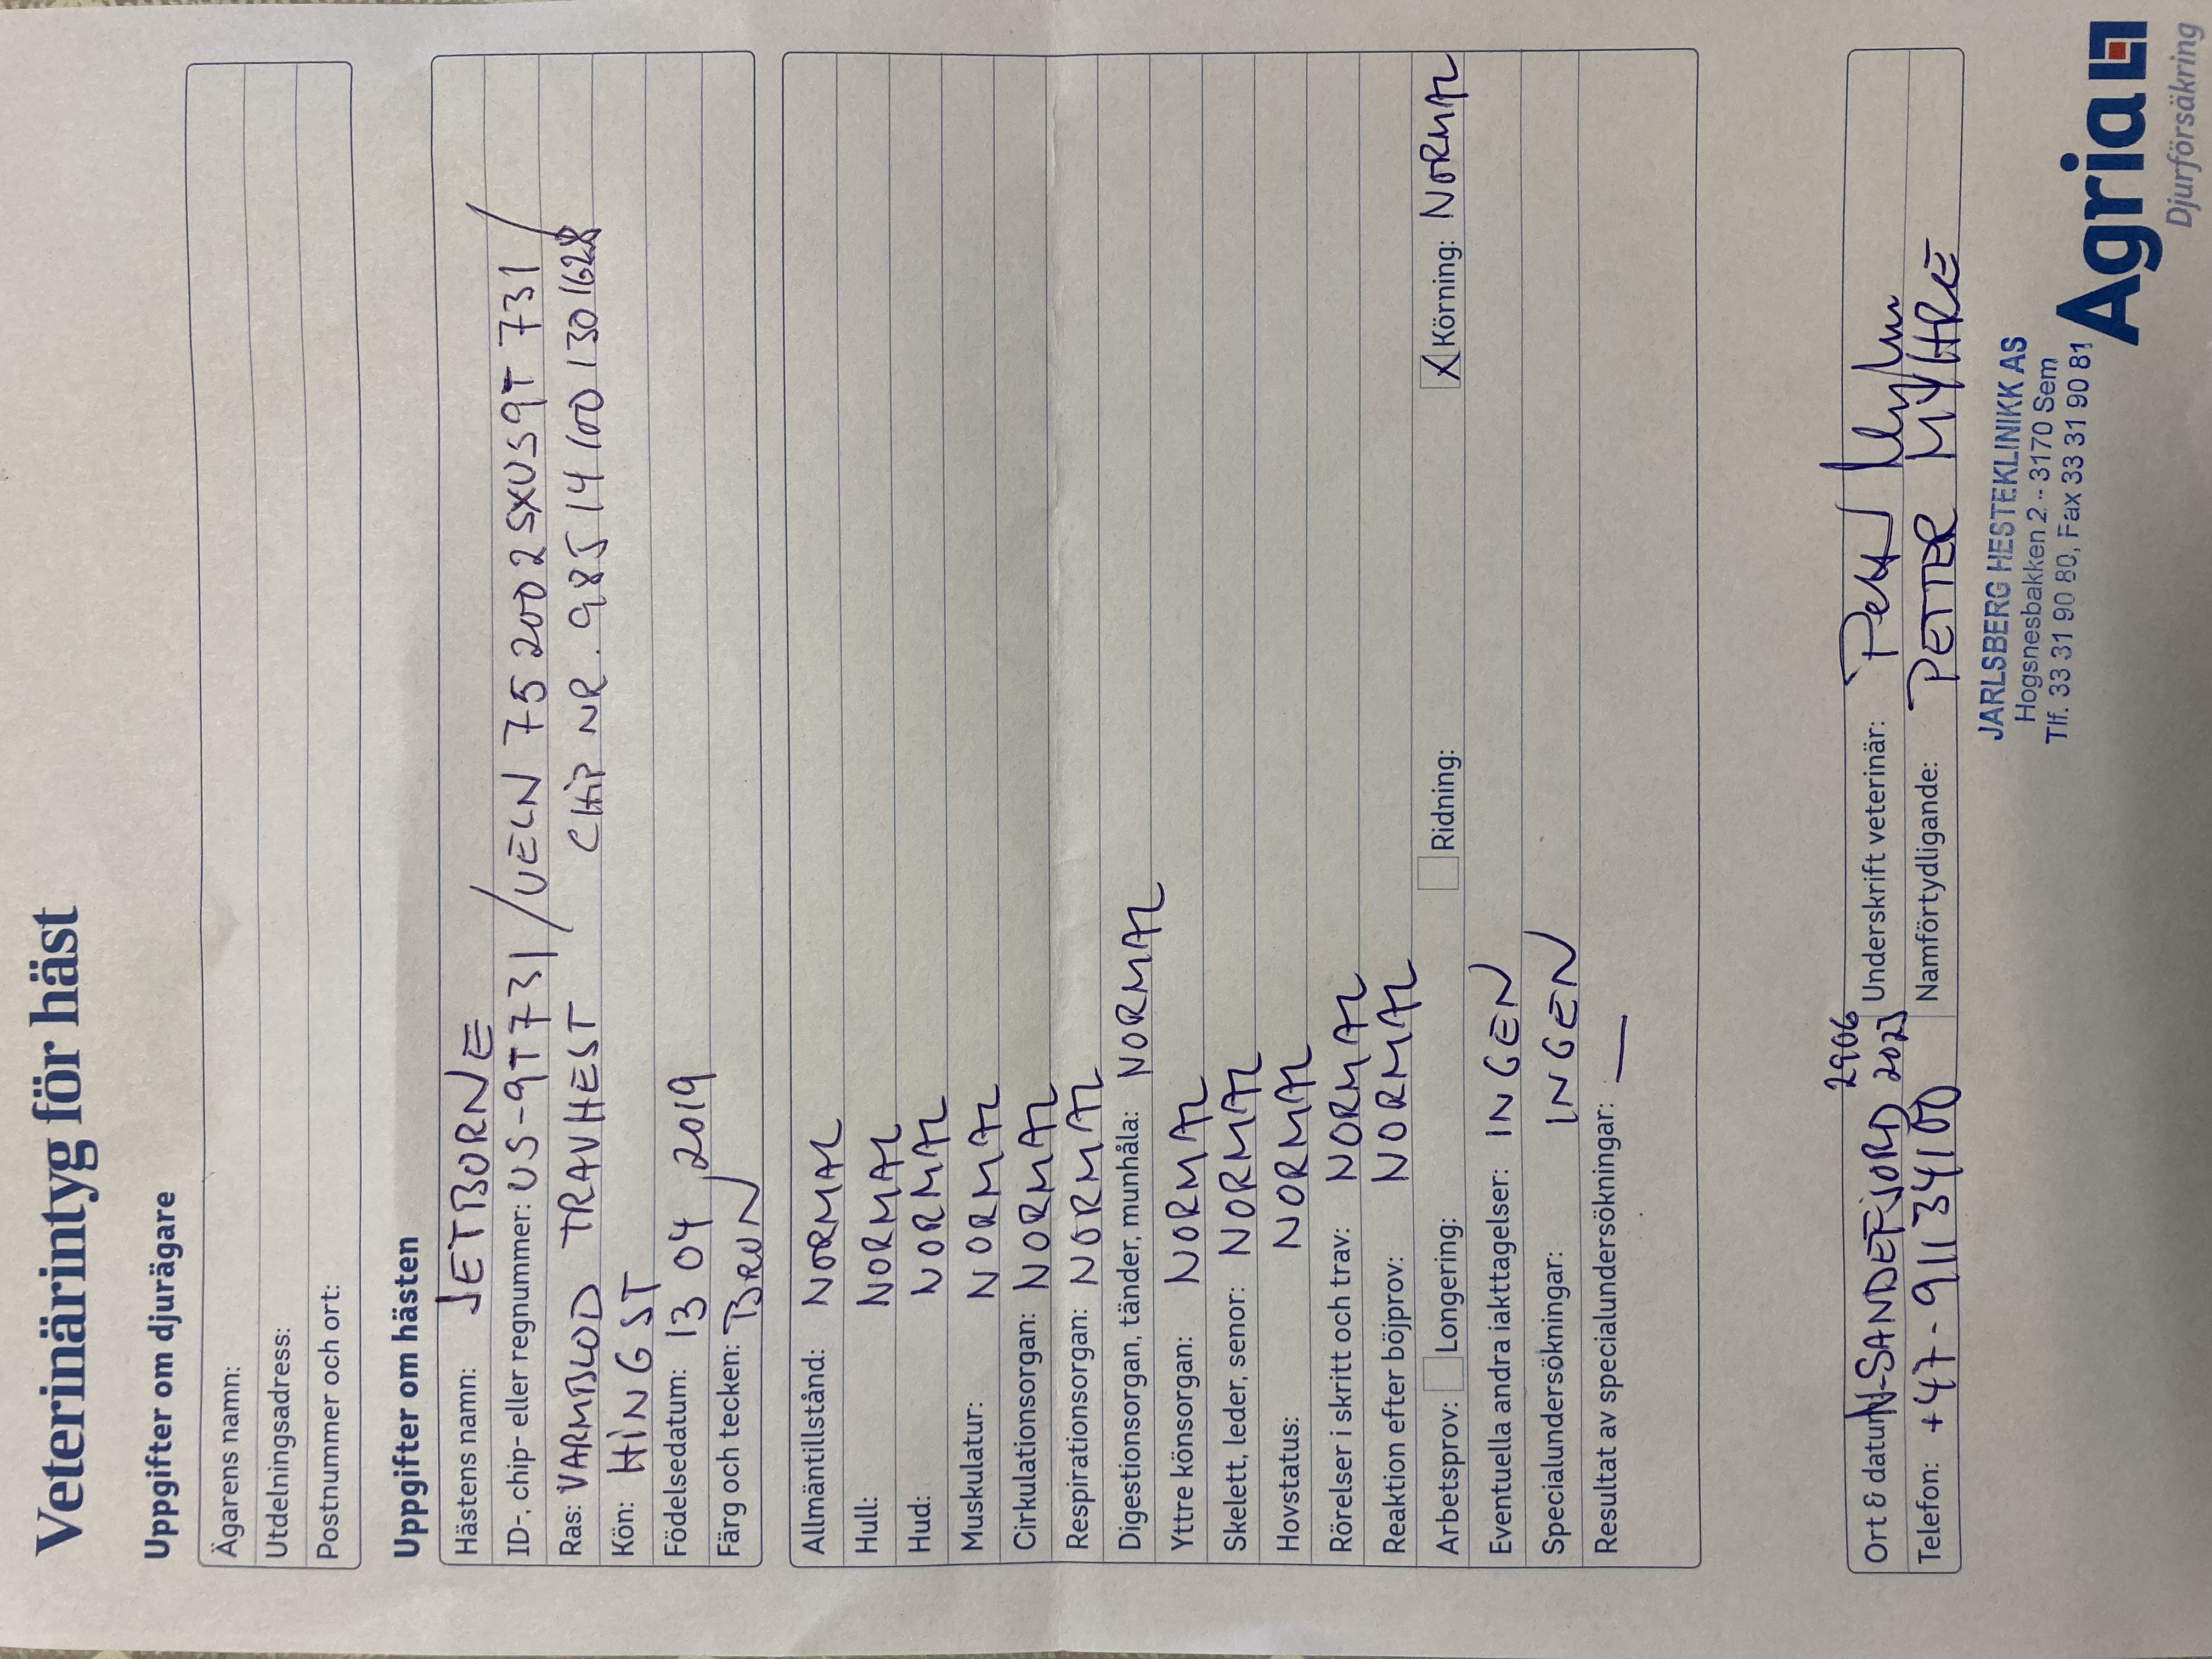 Veterinärintyg för häst
Uppgifter om djurägare
Ägarens namn:
Utdelningsadress:
Postnummer och ort:
Uppgifter om hästen
Hästens namn: JETBORNE
ID-, chip- eller regnummer: US-9T731/UELN 752002SXUS9T731/
Ras: VARMBLOD TRAVHEST CHIP NR. 985141001301628
Kön: HINGST
Födelsedatum: 13 04 2019
Färg och tecken: BRUN
Allmäntillstånd: NORMAL
Hull: NORMAL
Hud: NORMAL
Muskulatur: NORMAL
Cirkulationsorgan: NORMAL
Respirationsorgan: NORMAL
Digestionsorgan, tänder, munhåla: NORMAL
Yttre könsorgan: NORMAL
Skelett, leder, senor: NORMAL
Hovstatus: NORMAL
Rörelser i skritt och trav: NORMAL
Reaktion efter böjprov: NORMAL
Arbetsprov: Longering: Ridning: X Körning: NORMAL
Eventuella andra iakttagelser: INGEN
Specialundersökningar: INGEN
Resultat av specialundersökningar: —
Ort & datum N-SANDEFJORD 2906 Underskrift veterinär:
Telefon: +47-91134100 Namförtydligande: PETTER MYHRE
JARLSBERG HESTEKLINIKK AS
Hogsnesbakken 2 - 3170 Sem
Tlf. 33 31 90 80, Fax 33 31 90 81
Agria
Djurförsäkring